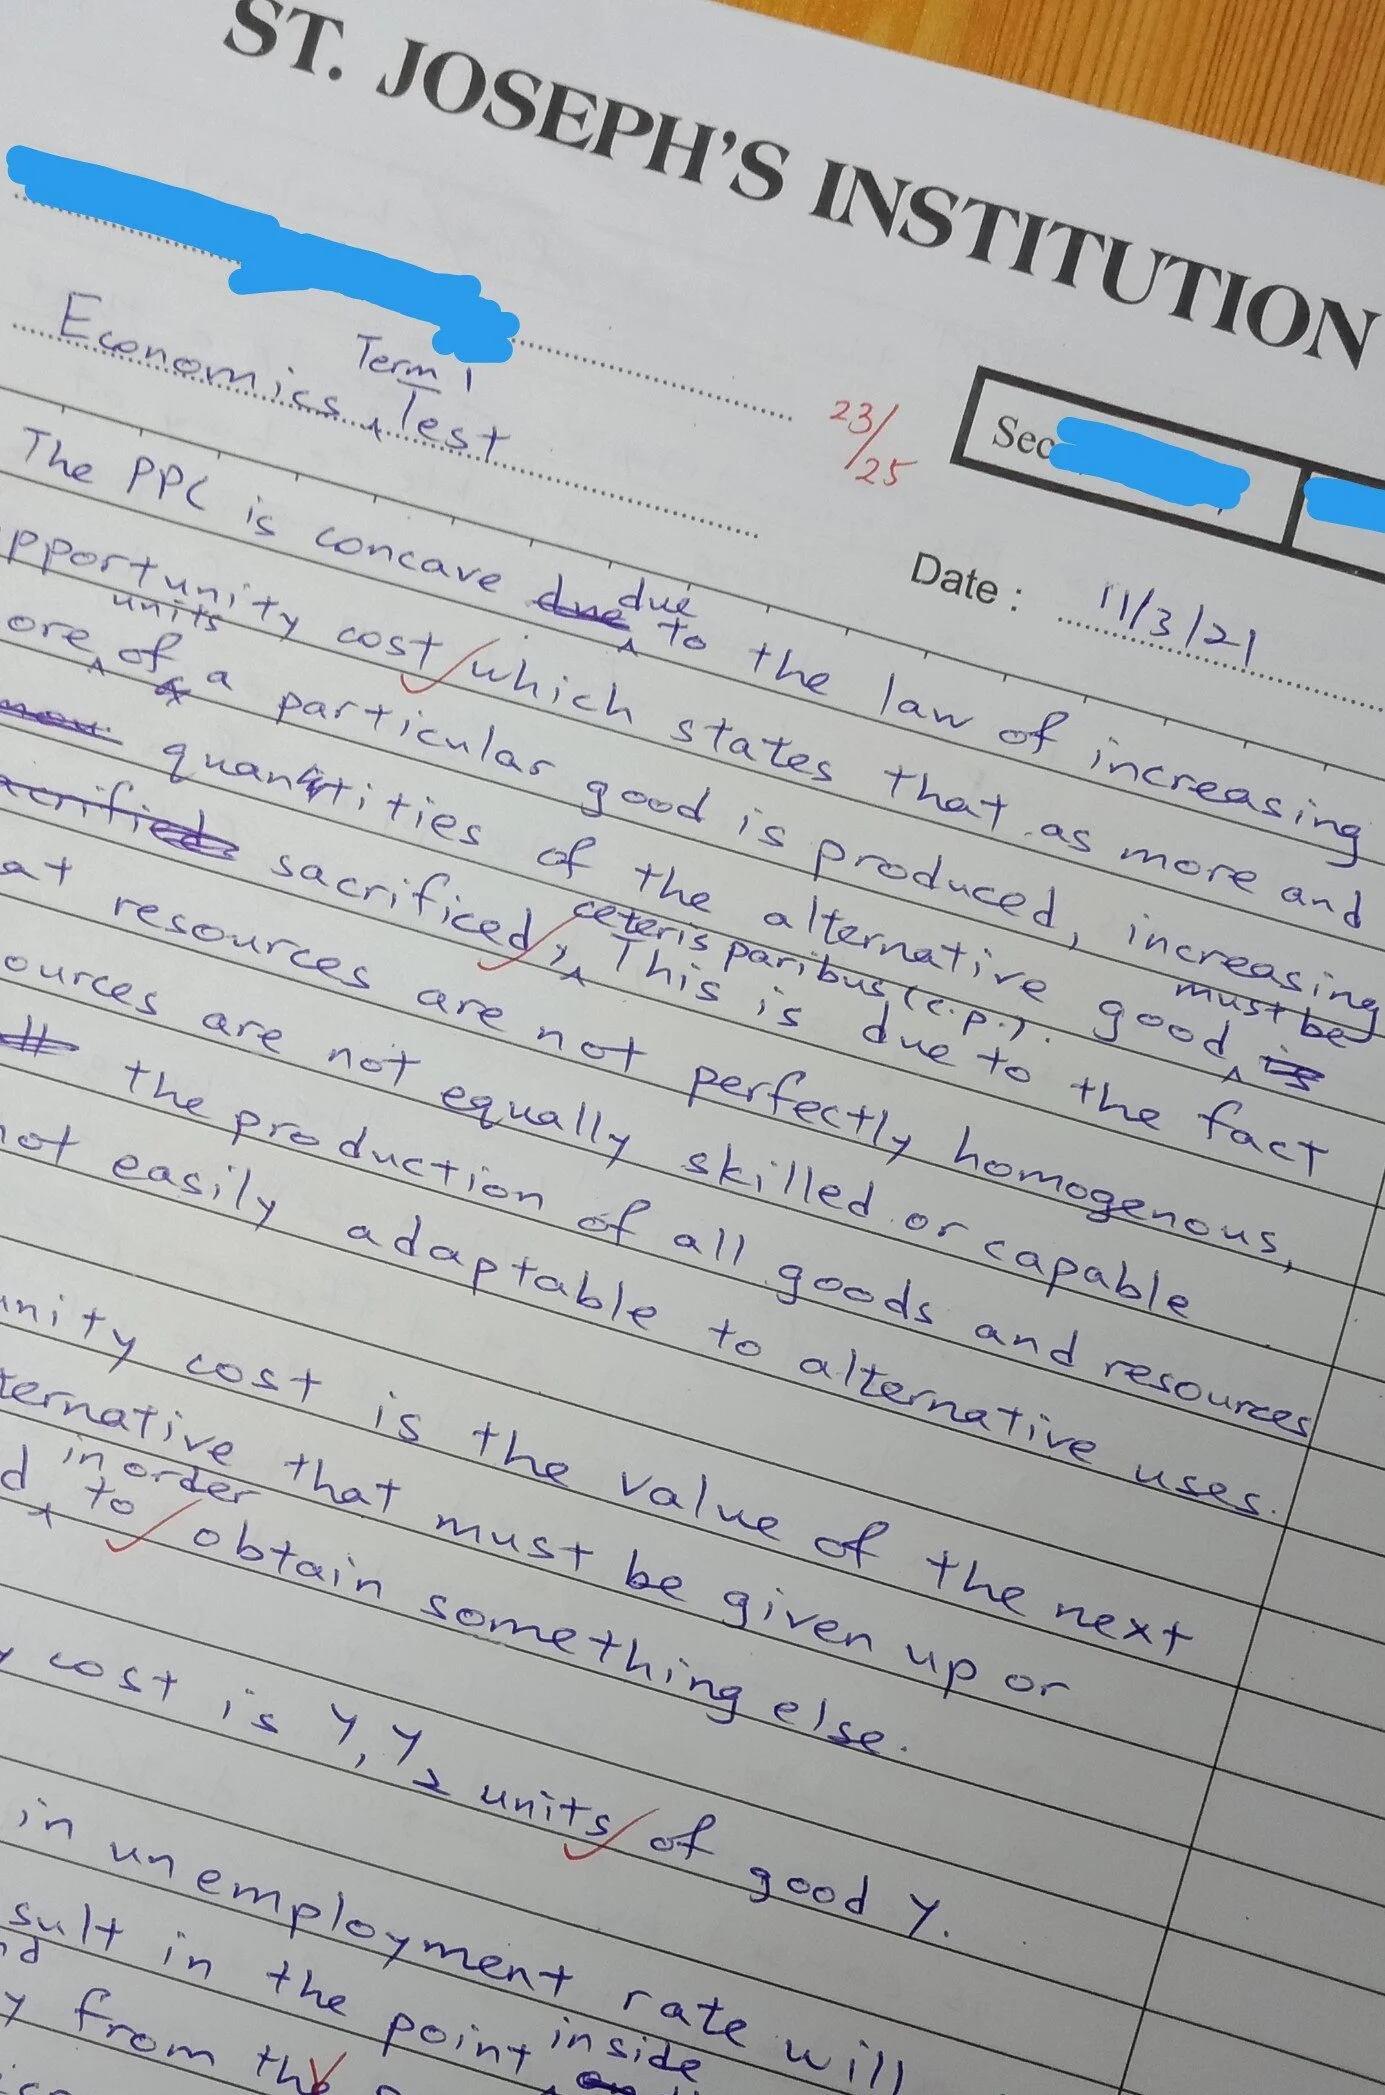 ST. JOSEPH'S INSTITUTION
Term 1
Economics Test
23/25
Sec
Date : 11/3/21
The PPC is concave due to the law of increasing
pportunity cost which states that as more and
ore units of a particular good is produced, increasing
quantities of the alternative good must be
sacrificed, ceteris paribus (c.p.). This is due to the fact
at resources are not perfectly homogenous,
ources are not equally skilled or capable
the production of all goods and resources
not easily adaptable to alternative uses.
unity cost is the value of the next
ternative that must be given up or
d in order to obtain something else.
y cost is Y1Y2 units of good Y.
in unemployment rate will
sult in the point inside
y from the